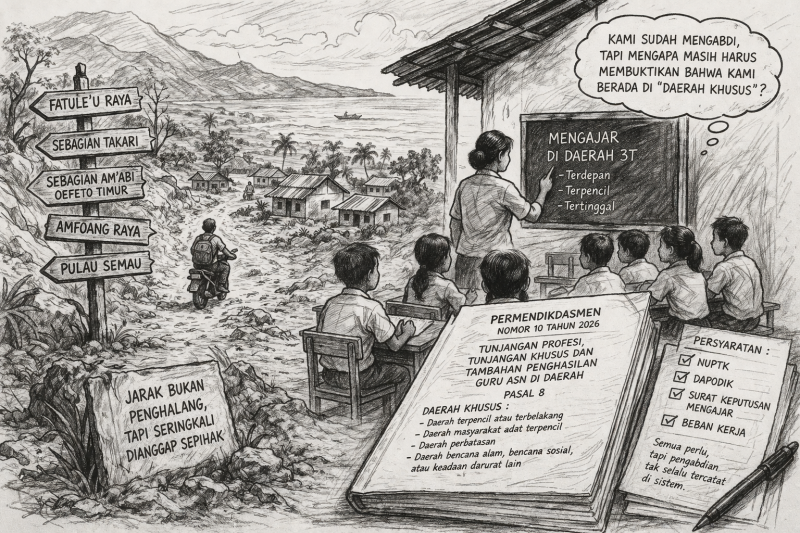 FATULE'U RAYA
SEBAGIAN TAKARI
SEBAGIAN AM'ABI
OEFETO TIMUR
AMFOANG RAYA
PULAU SEMAU
JARAK BUKAN
PENGHALANG,
TAPI SERINGKALI
DIANGGAP SEPIHAK
KAMI SUDAH MENGABDI,
TAPI MENGAPA MASIH HARUS
MEMBUKTIKAN BAHWA KAMI
BERADA DI "DAERAH KHUSUS"?
MENGAJAR
DI DAERAH 3T
- Terdepan
- Terpencil
- Tertinggal
PERMENDIKDASMEN
NOMOR 10 TAHUN 2026
TUNJANGAN PROFESI,
TUNJANGAN KHUSUS DAN
TAMBAHAN PENGHASILAN
GURU ASN DI DAERAH
PASAL 8
DAERAH KHUSUS :
- Daerah terpencil atau terbelakang
- Daerah masyarakat adat terpencil
- Daerah perbatasan
- Daerah bencana alam, bencana sosial,
atau keadaan darurat lain
PERSYARATAN :
NUPTK
DAPODIK
SURAT KEPUTUSAN
MENGAJAR
BEBAN KERJA
Semua perlu,
tapi pengabdian
tak selalu tercatat
di sistem.